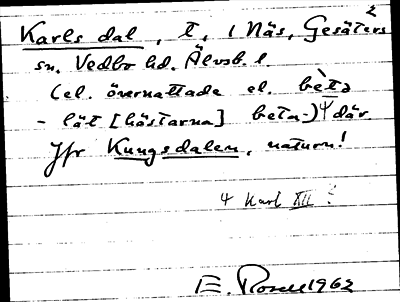 2
Karls dal, t, i Näs, Gesäters
sn. Vedbo hd. Älvsb. l.
(el. övernattade el. bètə
- lät [hästarna] beta-) 4 där.
Jfr Kungsdalen, naturn!
4 Karl XII ?
E. Rosell 1962